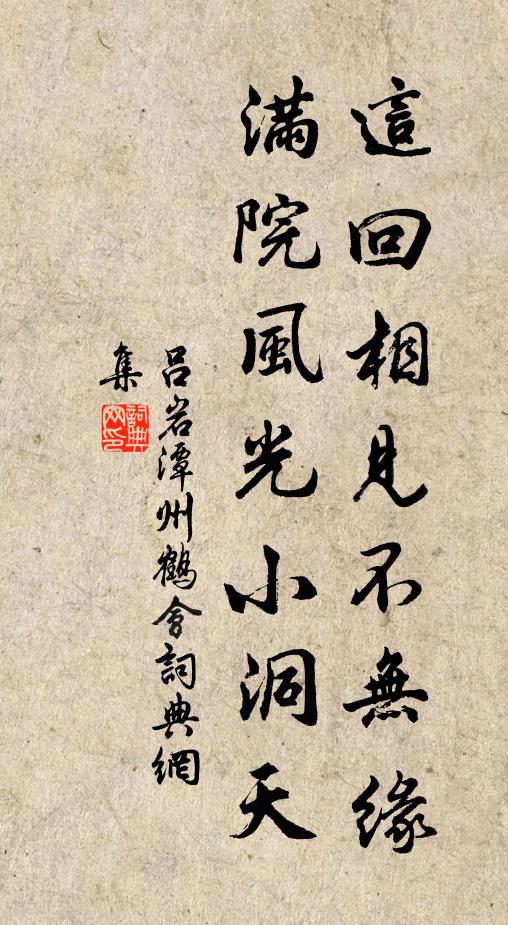 這回相見不無緣
滿院風光小洞天
吕岩潭州鶴會詞典網
集
詞典
网印